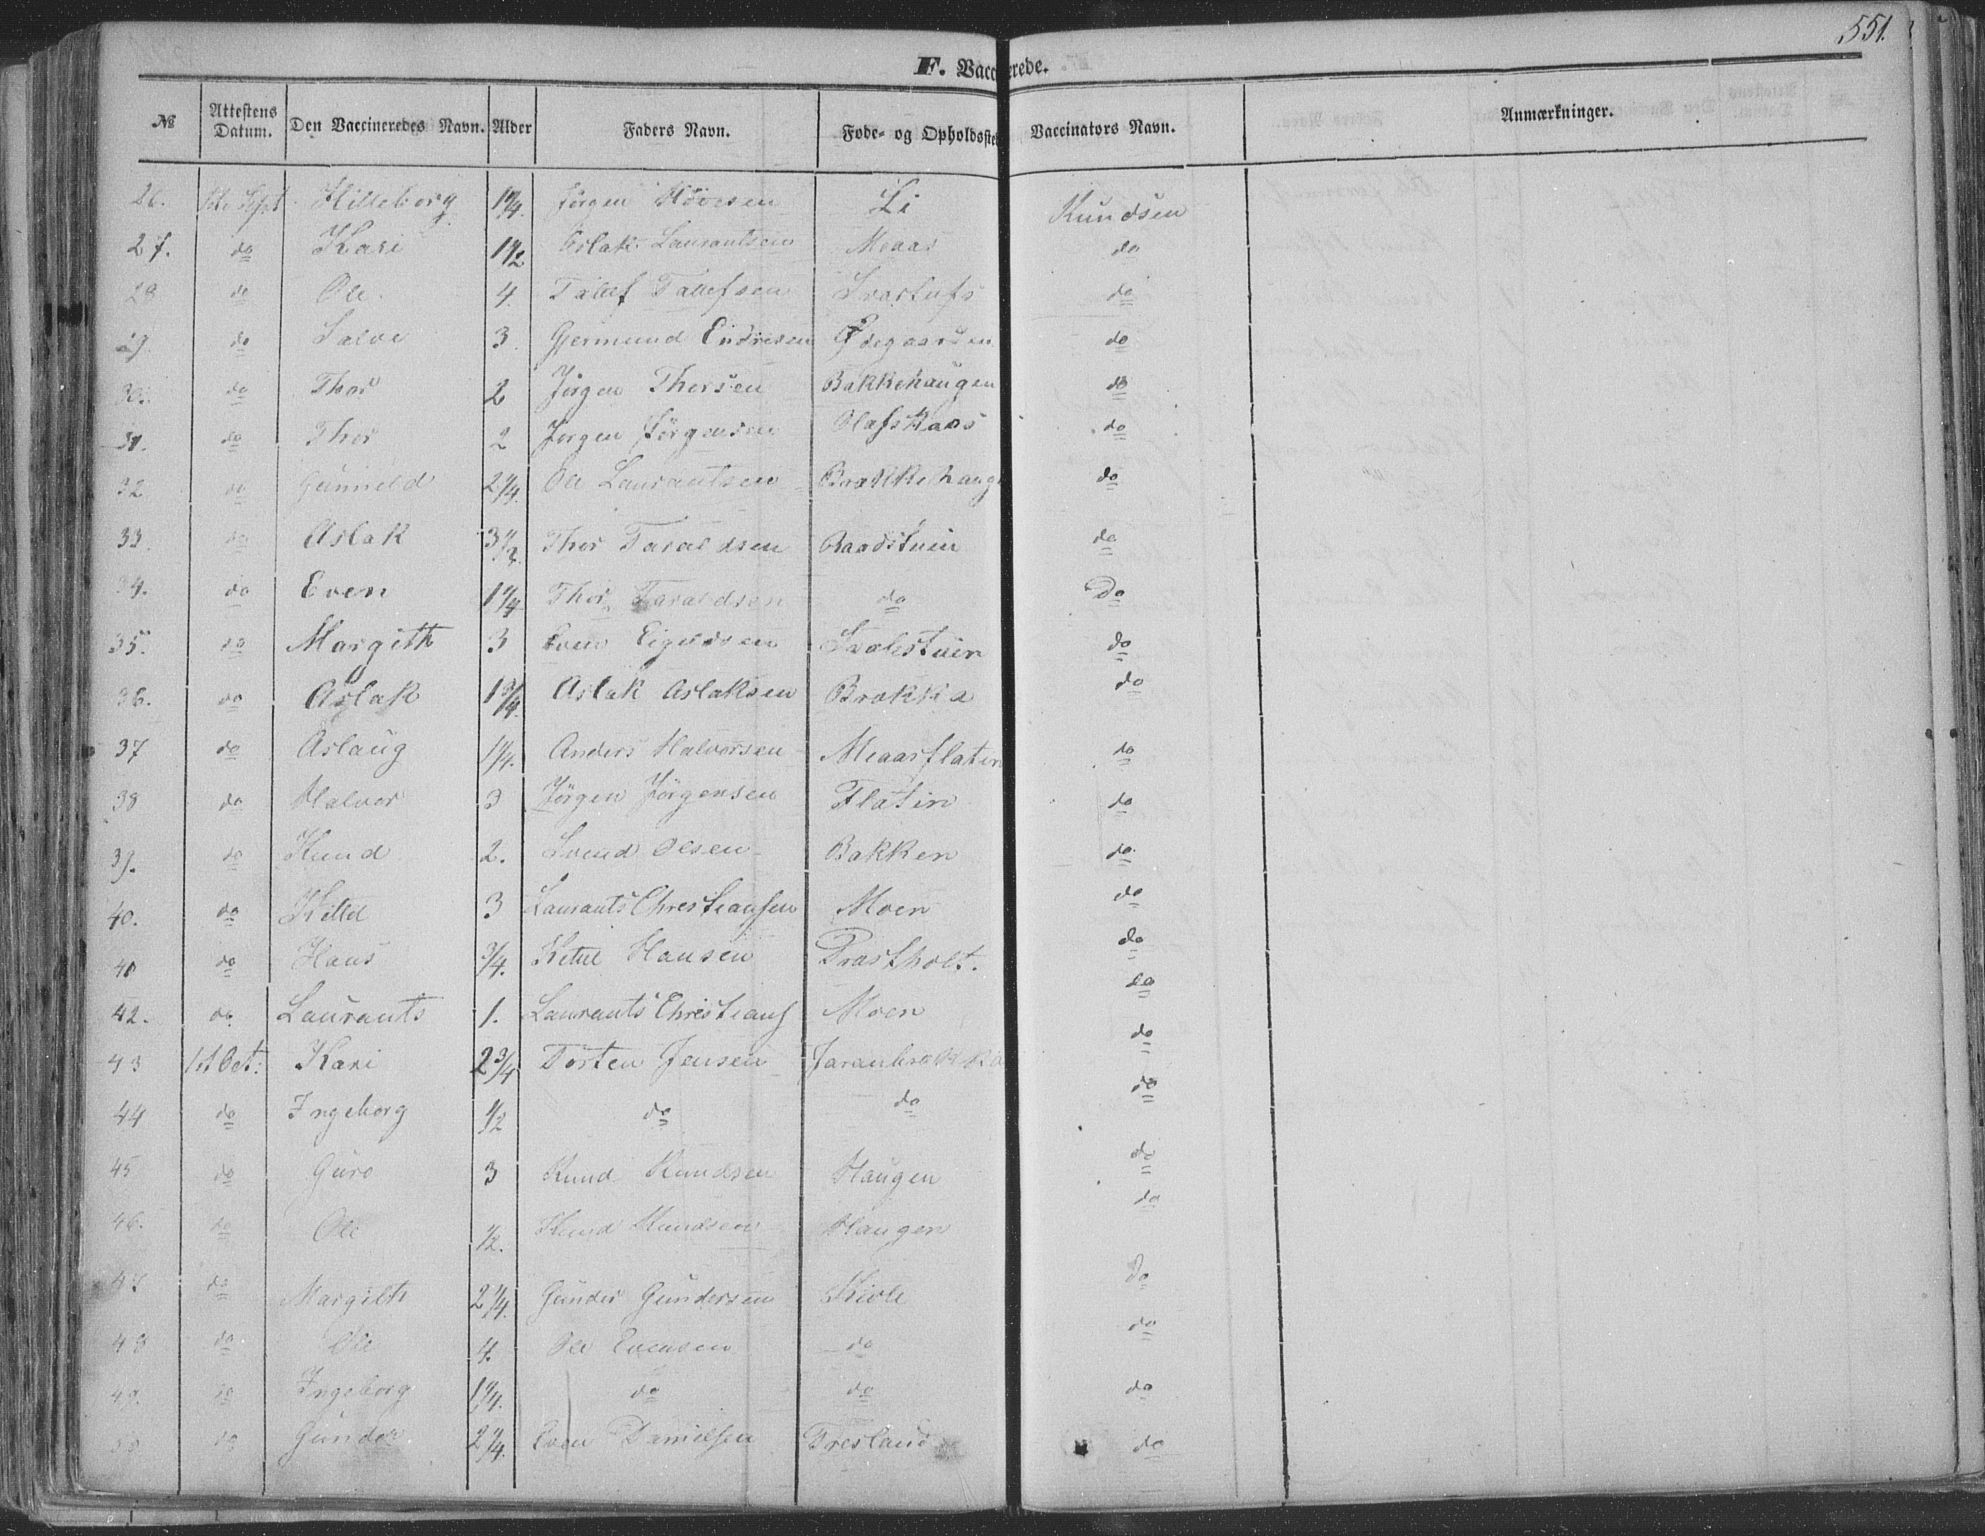 551.
F. Vaccinerede.
№ Attestens Datum. Den Vaccineredes Navn. Alder Faders Navn. Føde- og Opholdsste Vaccinators Navn. Anmærkninger.
26. Sept Hilleborg 1 1/4. Jørgen Li Knudsen
27. do Kari 1 1/2 Aslak Laurantsen Meaas do
28 do Ole 4. Tallef Tallefsen do
29. do Salve 3 Gjermund Endresen Ødegaarden do
30. do Thor 2 Jørgen Thorsen Bakkehaugen do
31. do Thor 2 Jørgen Jørgensen Olafskaas do
32 do Gunneld 2 1/4. Ole Laurantsen Brakkehaug do
33. do Aslak 3 1/2. Thor Taraldsen Baadstuen do
34. do Even 1 1/4 Thor Taraldsen do Do
35. do Margith 3 Even do
36. do Aslak 1 3/4. Aslak Aslaksen Brokka do
37 do Aslaug 1/4. Anders Halvorsen Meaasflatin do
38 do Halvor 3 Jørgen Jørgensen Flatin do
39. do Knud 2. Svend Olsen Bakken do.
40. do Killd 3 Laurants Christiansen Moen do
41 do Hans 3/4. Ketil Hansen Prastholt. do
42. do. Laurants 1. Laurants Christians Moen do
43 1st Oct: Kari 2 3/4 Torsten Jensen Jaranbrakka do
44 do Ingeborg 1/2 do do do
45 do Guro 3 Knud Knudsen Haugen do
46. do Ole 1/2. Knud Knudsen Haugen do
47 do Margith 2 1/4. Gunder Gundersen Kivle do
48 do Ole 4. Ole Evensen do do
49. do Ingeborg 1 1/4. do do do
50 do Gunder 2 1/4. Even Danielsen Tresland do